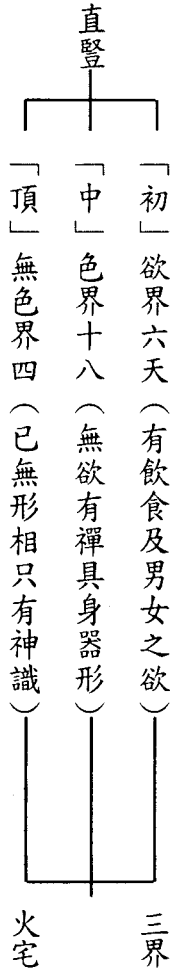 直豎
「初」欲界六天（有飲食及男女之欲）
「中」色界十八（無欲有禪具身器形）
「頂」無色界四（已無形相只有神識）
三界
火宅